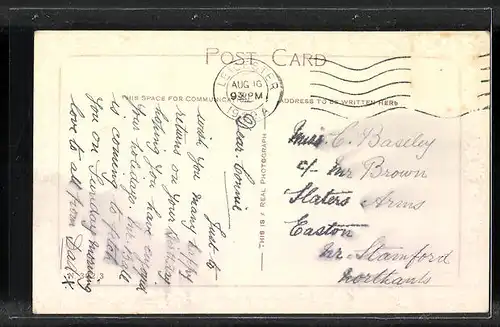 POST CARD
LEICESTER
AUG 16
9 30 PM
THIS SPACE FOR COMMUNICATION
ADDRESS TO BE WRITTEN HERE
THIS IS A REAL PHOTOGRAPH
Dear Connie
Just to
wish you many happy
returns on your Birthday
hoping you have enjoyed
your holidays. Mr
is coming to fetch
you on Sunday morning
love to all from Dad X
Miss C. Baseley
c/o Mr Brown
Slaters Arms
Easton
Nr Stamford
Northants